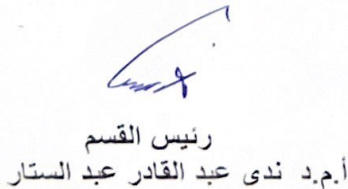 رئيس القسم
أ.م.د ندى عبد القادر عبد الستار